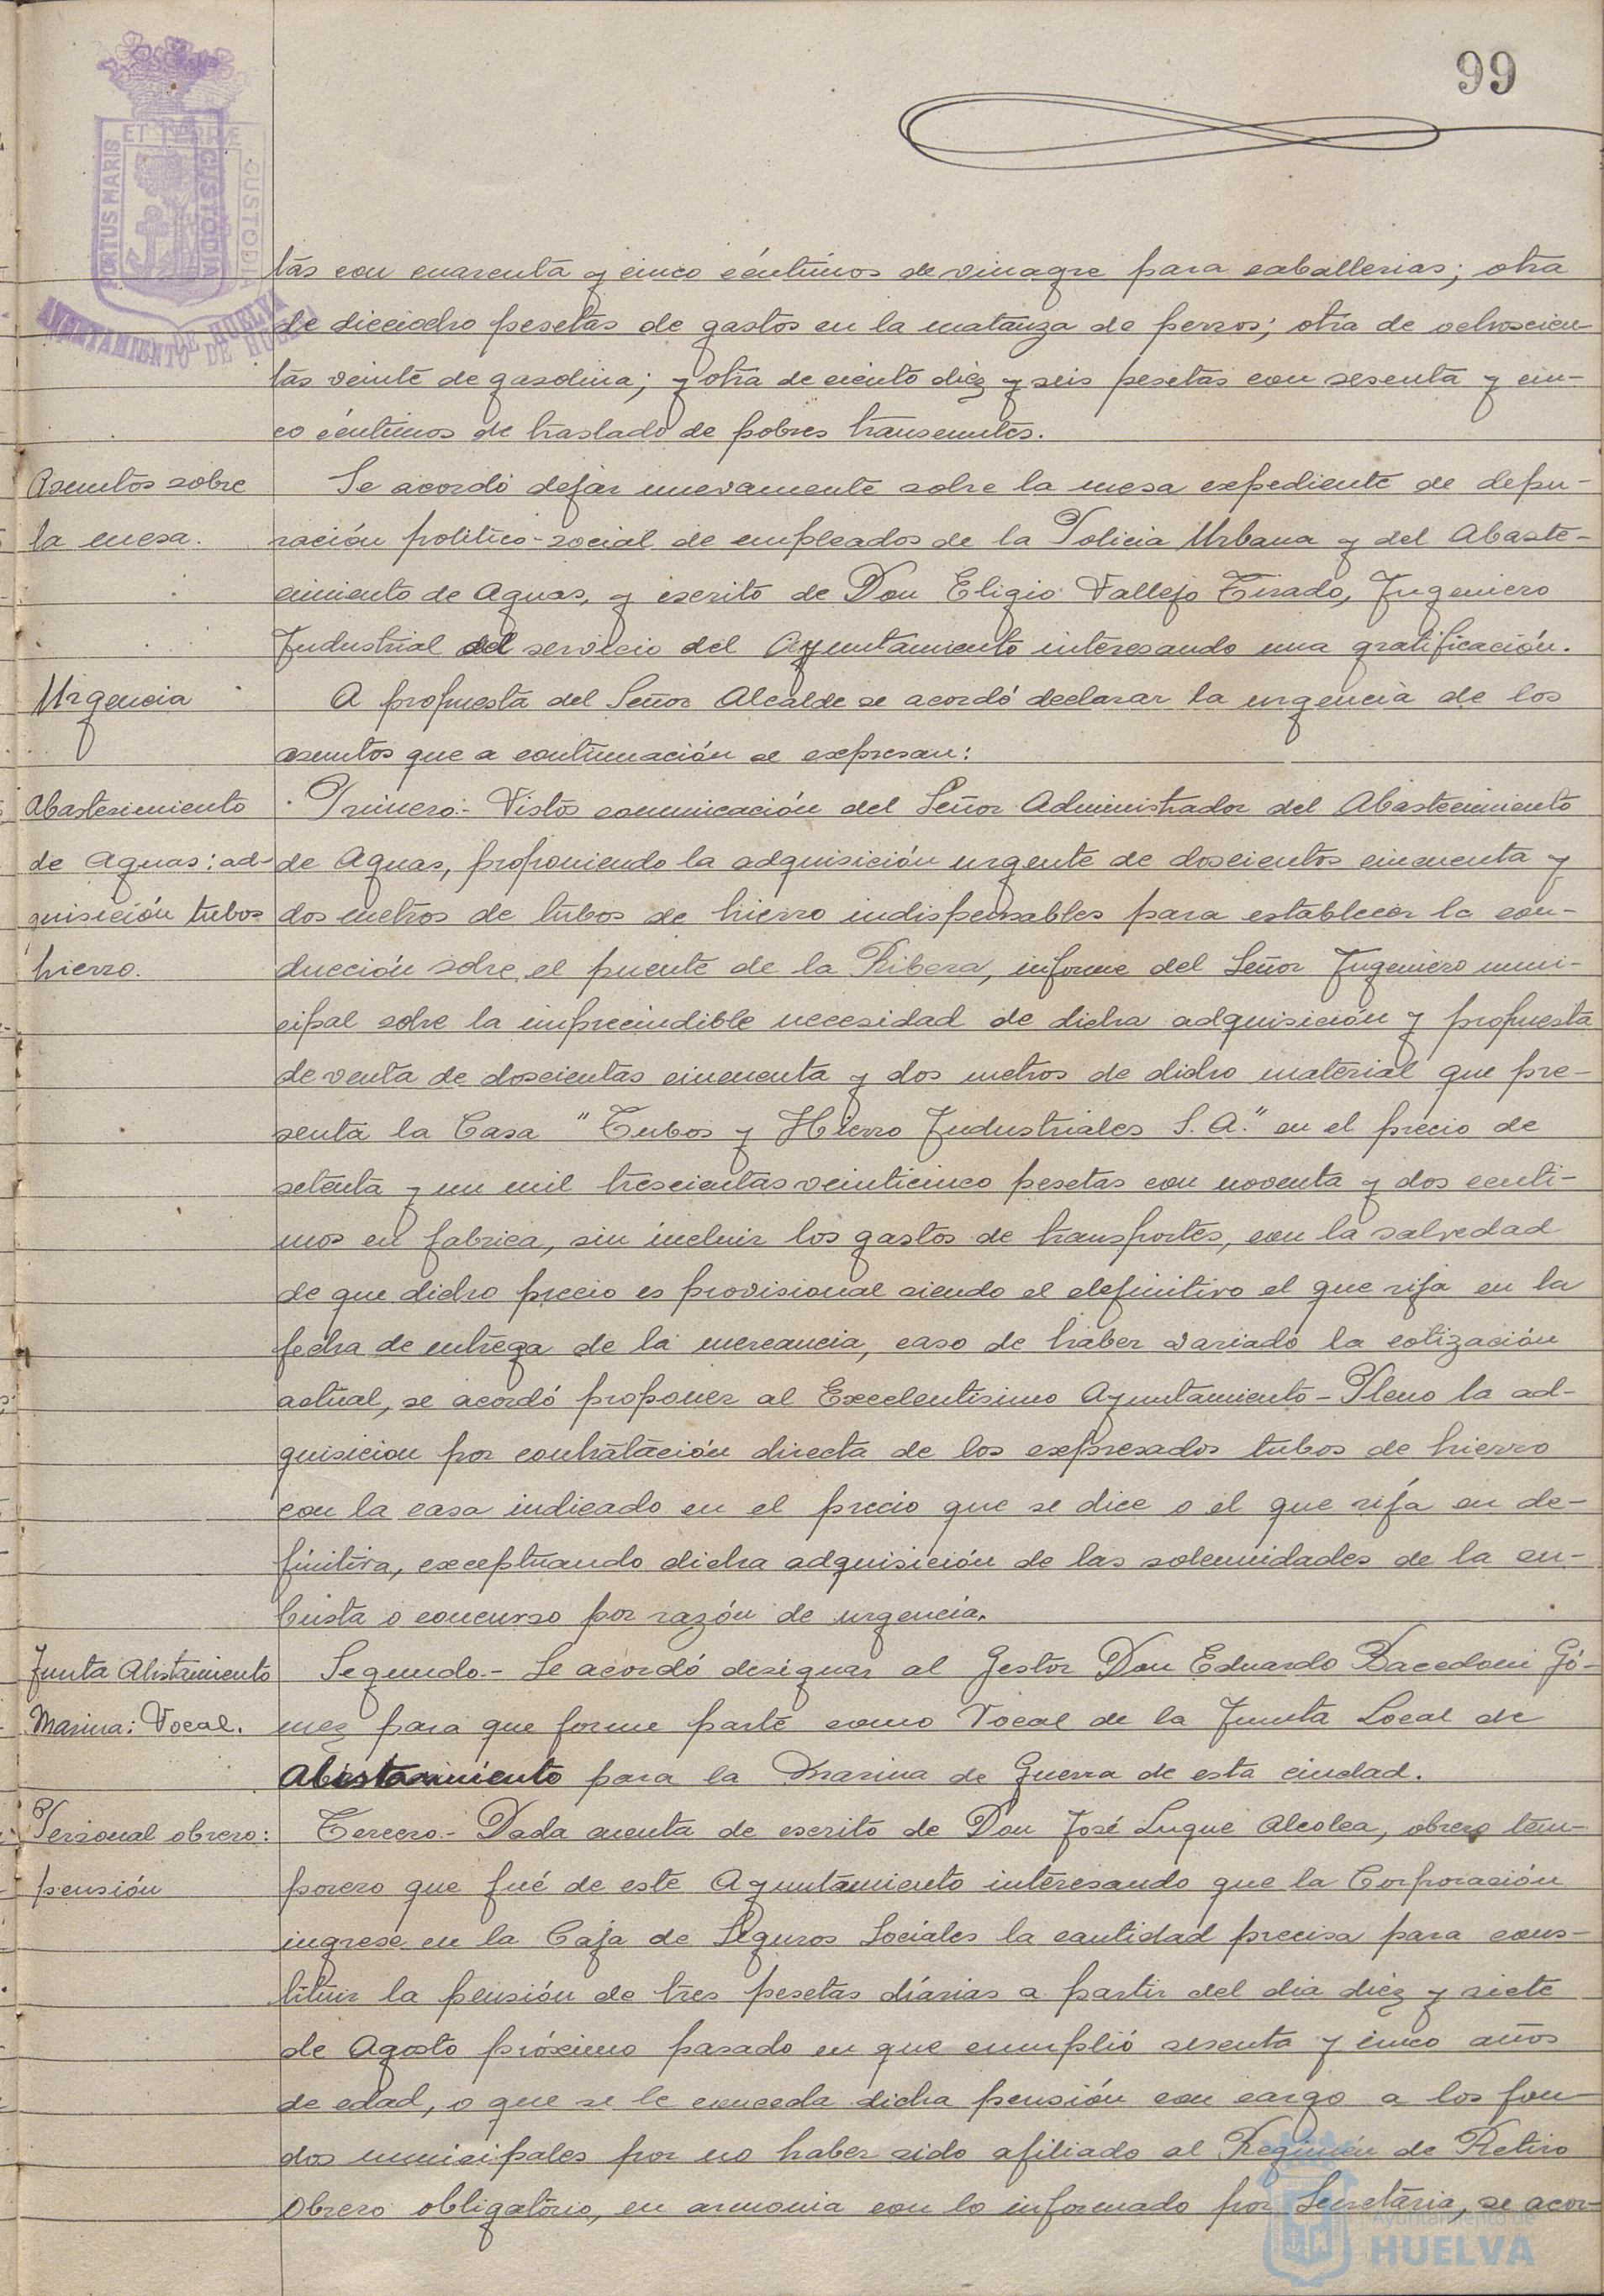 99
PORTUS MARIS
ET TERRAE
CUSTODIA
AYUNTAMIENTO DE HUELVA
tas con cuarenta y cinco céntimos de vinagre para caballerias; otra
de dieciocho pesetas de gastos en la matanza de perros; otra de ochocien-
tas veinte de gasolina; y otra de ciento diez y seis pesetas con sesenta y cin-
co céntimos de traslado de pobres transeuntes.
Asuntos sobre
la mesa.
Se acordó dejar nuevamente sobre la mesa expediente de depu-
ración politico-social de empleados de la Policia Urbana y del Abaste-
cimiento de Aguas, y escrito de Don Eligio Vallejo Tirado, Ingeniero
Industrial del servicio del Ayuntamiento interesando una gratificación.
Urgencia
A propuesta del Señor Alcalde se acordó declarar la urgencia de los
asuntos que a continuación se expresan:
Abastecimiento
de Aguas: ad-
quisición tubos
hierro.
Primero.- Vistos comunicación del Señor Administrador del Abastecimiento
de Aguas, proponiendo la adquisición urgente de doscientos cincuenta y
dos metros de tubos de hierro indispensables para establecer la con-
ducción sobre el puente de la Ribera, informe del Señor Ingeniero muni-
cipal sobre la imprecindible necesidad de dicha adquisición y propuesta
de venta de doscientas cincuenta y dos metros de dicho material que pre-
senta la Casa "Tubos y Hierro Industriales S.A." en el precio de
setenta y un mil trescientas veinticinco pesetas con noventa y dos centi-
mos en fabrica, sin incluir los gastos de transportes, con la salvedad
de que dicho precio es provisional siendo el definitivo el que rija en la
fecha de entrega de la mercancia, caso de haber variado la cotización
actual, se acordó proponer al Excelentisimo Ayuntamiento-Pleno la ad-
quisicion por contratación directa de los expresados tubos de hierro
con la casa indicado en el precio que se dice o el que rija en de-
finitiva, exceptuando dicha adquisición de las solemnidades de la su-
basta o concurso por razón de urgencia.
Junta Alistamiento
Marina: Vocal.
Segundo.- Se acordó designar al Gestor Don Eduardo Bacedoni Gó-
mez para que forme parte como Vocal de la Junta Local de
Alistamiento para la Marina de Guerra de esta ciudad.
Personal obrero:
pensión
Tercero.- Dada cuenta de escrito de Don José Luque Alcolea, obrero tem-
porero que fué de este Ayuntamiento interesando que la Corporación
ingrese en la Caja de Seguros Sociales la cantidad precisa para cons-
tituir la pensión de tres pesetas diárias a partir del dia diez y siete
de Agosto próximo pasado en que cumplió sesenta y cinco años
de edad, o que se le conceda dicha pensión con cargo a los fon-
dos municipales por no haber sido afiliado al Regimén de Retiro
Obrero obligatorio, en armonia con lo informado por Secretaria, se acor-
Ayuntamiento de
HUELVA